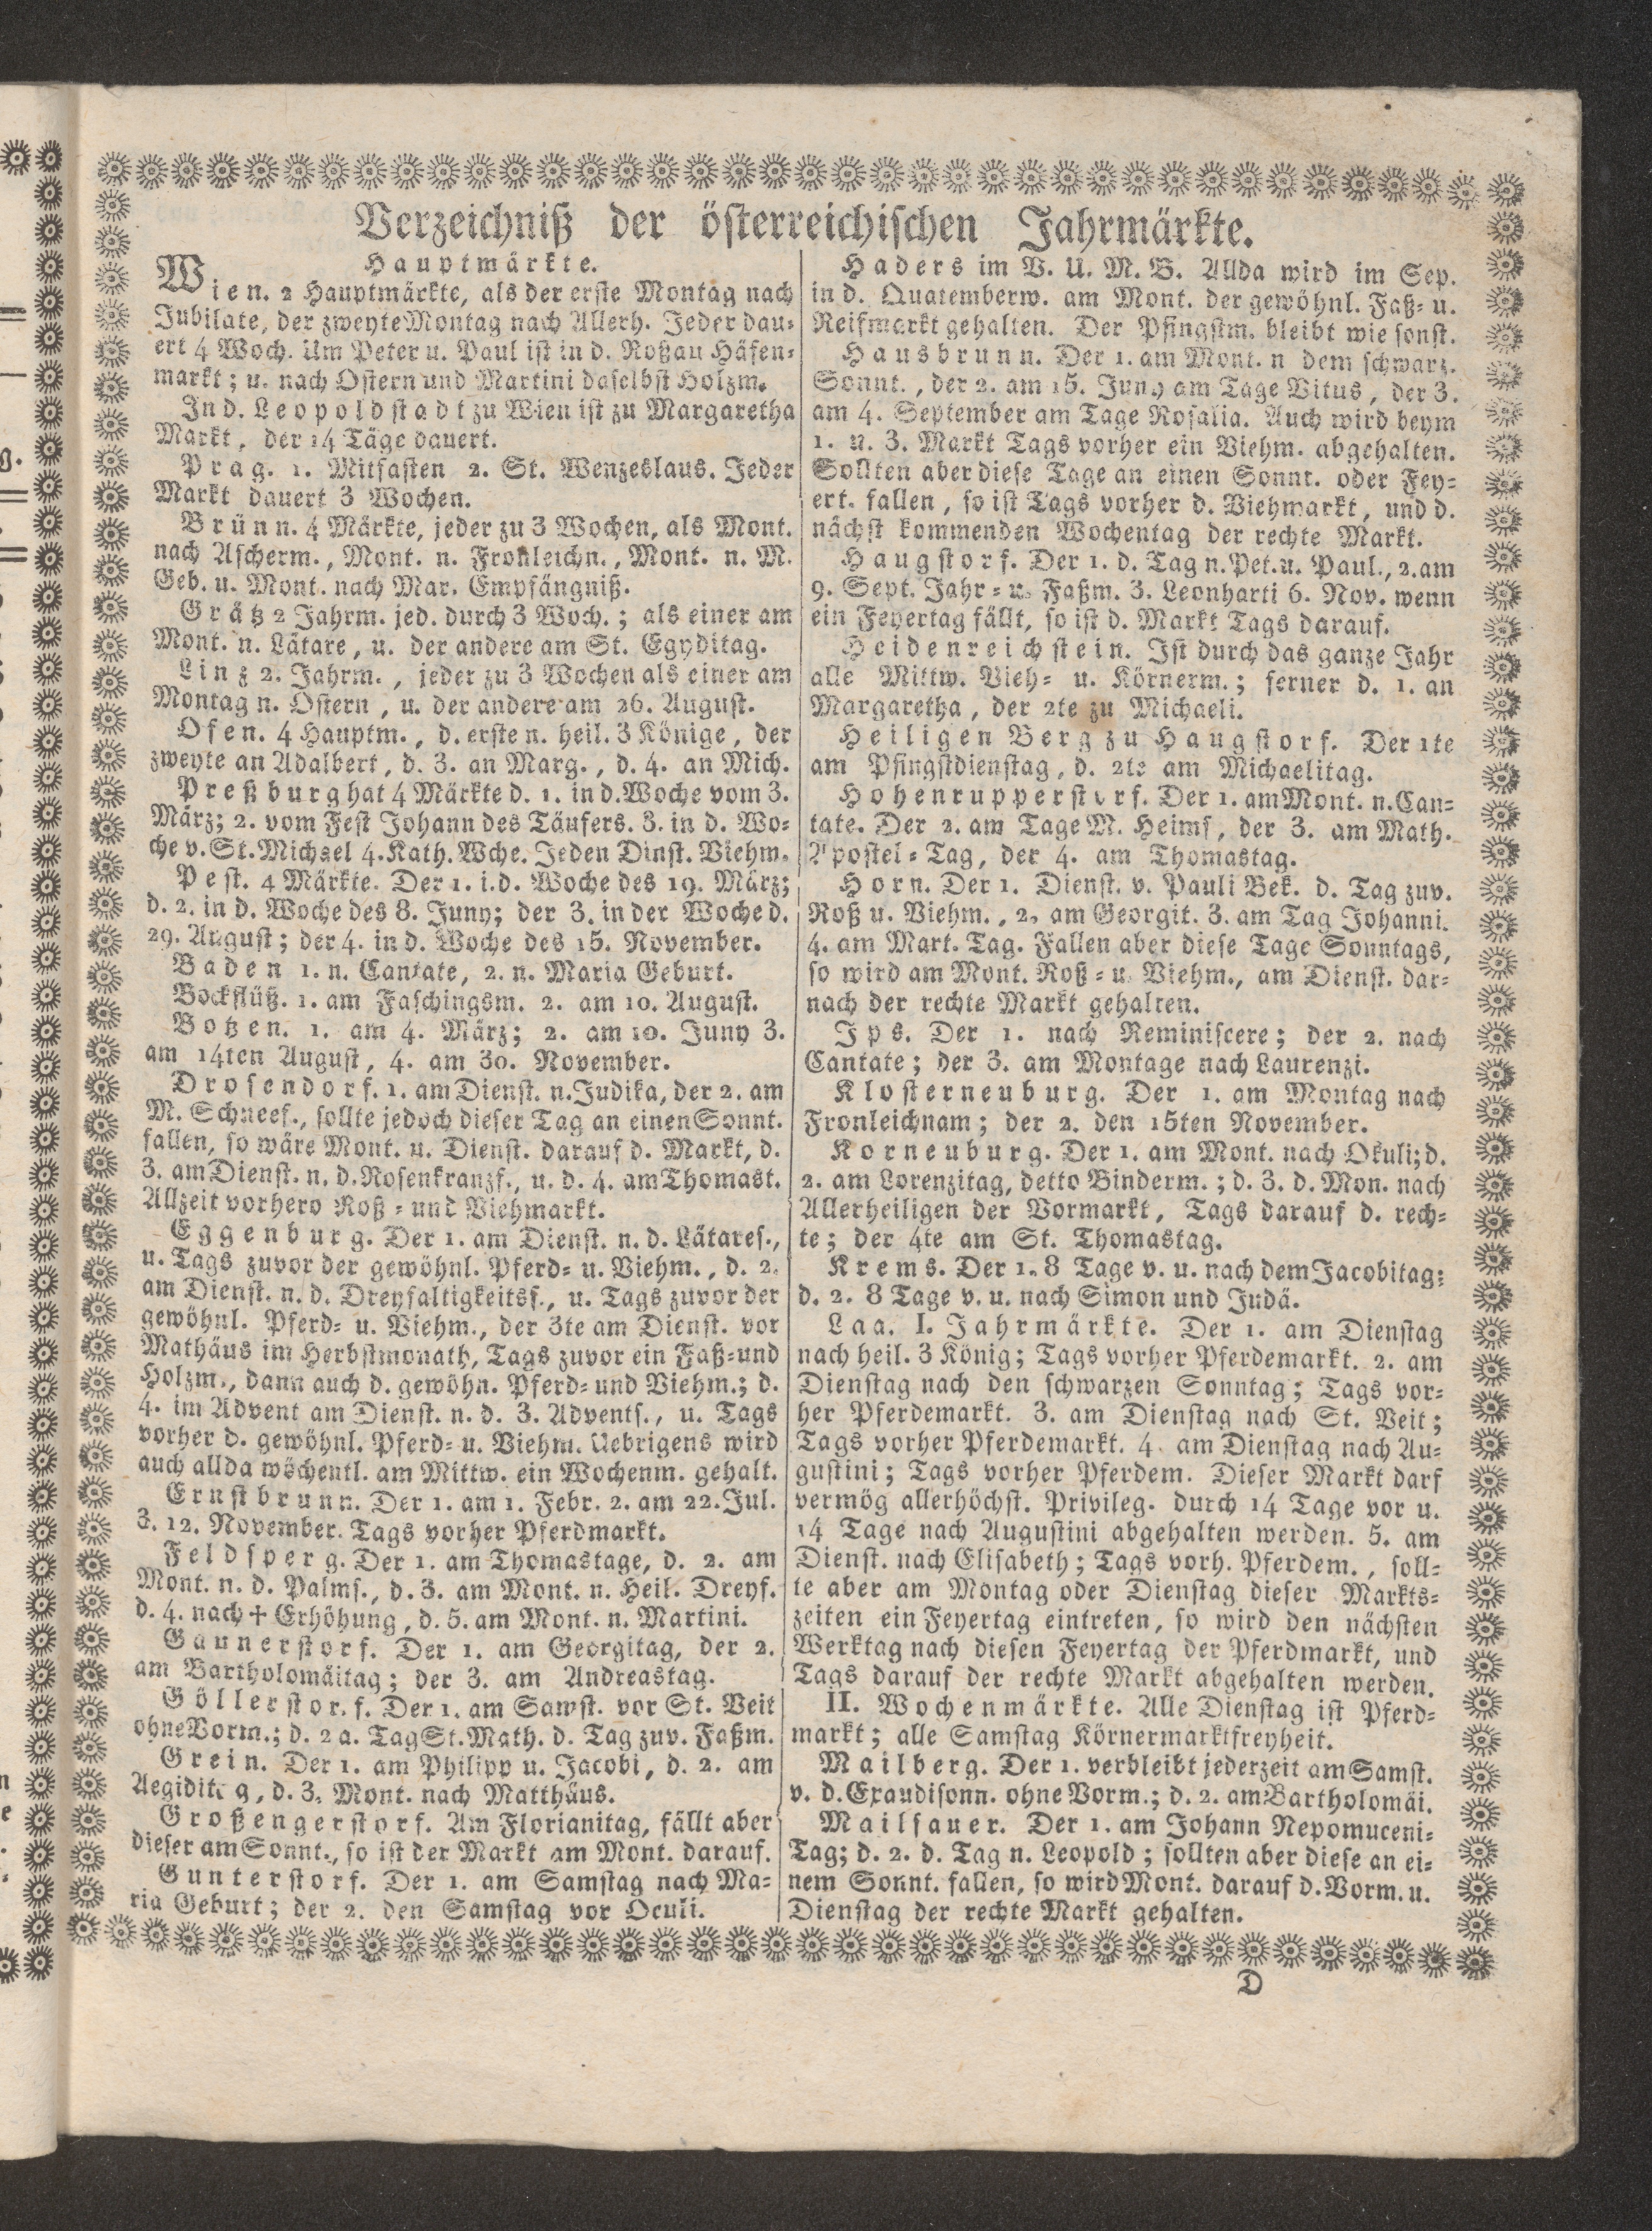 Verzeichniß der österreichischen Jahrmärkte.
Hauptmärkte.
Wien. 2 Hauptmärkte, als der erste Montag nach
Jubilate, der zweyte Montag nach Allerh. Jeder dau=
ert 4 Woch. Um Peter u. Paul ist in d. Roßau Häfen=
markt; u. nach Ostern und Martini daselbst Holzm.
In d. Leopoldstadt zu Wien ist zu Margaretha
Markt, der 14 Täge dauert.
Prag. 1. Mitfasten 2. St. Wenzeslaus. Jeder
Markt dauert 3 Wochen.
Brünn. 4 Märkte, jeder zu 3 Wochen, als Mont.
nach Ascherm., Mont. n. Fronleichn., Mont. n. M.
Geb. u. Mont. nach Mar. Empfängniß.
Grätz 2 Jahrm. jed. durch 3 Woch.; als einer am
Mont. n. Lätare, u. der andere am St. Egyditag.
Linz 2. Jahrm., jeder zu 3 Wochen als einer am
Montag n. Ostern, u. der andere am 26. August.
Ofen. 4 Hauptm., d. erste n. heil. 3 Könige, der
zweyte an Adalbert, d. 3. an Marg., d. 4. an Mich.
Preßburg hat 4 Märkte d. 1. in d. Woche vom 3.
März; 2. vom Fest Johann des Täufers. 3. in d. Wo=
che v. St. Michael 4. Kath. Wche. Jeden Dinst. Viehm.
Pest. 4 Märkte. Der 1. i. d. Woche des 19. März;
d. 2. in d. Woche des 8. Juny; der 3. in der Woche d.
29. August; der 4. in d. Woche des 15. November.
Baden 1. n. Cantate, 2. n. Maria Geburt.
Bockflüß. 1. am Faschingsm. 2. am 10. August.
Botzen. 1. am 4. März; 2. am 10. Juny 3.
am 14ten August, 4. am 30. November.
Drosendorf. 1. am Dienst. n. Judika, der 2. am
M. Schneef., sollte jedoch dieser Tag an einen Sonnt.
fallen, so wäre Mont. u. Dienst. darauf d. Markt, d.
3. am Dienst. n. d. Rosenkranzf., u. d. 4. am Thomast.
Allzeit vorhero Roß= und Viehmarkt.
Eggenburg. Der 1. am Dienst. n. d. Lätares.,
u. Tags zuvor der gewöhnl. Pferd= u. Viehm., d. 2.
am Dienst. n. d. Dreyfaltigkeitsf., u. Tags zuvor der
gewöhnl. Pferd= u. Viehm., der 3te am Dienst. vor
Mathäus im Herbstmonath, Tags zuvor ein Faß= und
Holzm., dann auch d. gewöhn. Pferd= und Viehm.; d.
4. im Advent am Dienst. n. d. 3. Advents., u. Tags
vorher d. gewöhnl. Pferd= u. Viehm. Uebrigens wird
auch allda wöchentl. am Mittw. ein Wochenm. gehalt.
Ernstbrunn. Der 1. am 1. Febr. 2. am 22. Jul.
3. 12. November. Tags vorher Pferdmarkt.
Feldsperg. Der 1. am Thomastage, d. 2. am
Mont. n. d. Palms., d. 3. am Mont. n. Heil. Dreyf.
d. 4. nach † Erhöhung, d. 5. am Mont. n. Martini.
Gaunerstorf. Der 1. am Georgitag, der 2.
am Bartholomäitag; der 3. am Andreastag.
Göllerstor.f. Der 1. am Samst. vor St. Veit
ohne Vorm.; d. 2 a. Tag St. Math. d. Tag zuv. Faßm.
Grein. Der 1. am Philipp u. Jacobi, d. 2. am
Aegidit g, d. 3. Mont. nach Matthäus.
Großengerstorf. Am Florianitag, fällt aber
dieser am Sonnt., so ist der Markt am Mont. darauf.
Gunterstorf. Der 1. am Samstag nach Ma=
ria Geburt; der 2. den Samstag vor Oculi.
Haders im V. U. M. B. Allda wird im Sep.
in d. Quatemberw. am Mont. der gewöhnl. Faß= u.
Reifmarkt gehalten. Der Pfingstm. bleibt wie sonst.
Hausbrunn. Der 1. am Mont. n dem schwarz.
Sonnt., der 2. am 15. Juny am Tage Vitus, der 3.
am 4. September am Tage Rosalia. Auch wird beym
1. u. 3. Markt Tags vorher ein Viehm. abgehalten.
Sollten aber diese Tage an einen Sonnt. oder Fey=
ert. fallen, so ist Tags vorher d. Viehmarkt, und d.
nächst kommenden Wochentag der rechte Markt.
Haugstorf. Der 1. d. Tag n. Pet. u. Paul., 2. am
9. Sept. Jahr= u. Faßm. 3. Leonharti 6. Nov. wenn
ein Feyertag fällt, so ist d. Markt Tags darauf.
Heidenreichstein. Ist durch das ganze Jahr
alle Mittw. Vieh= u. Körnerm.; ferner d. 1. an
Margaretha, der 2te zu Michaeli.
Heiligen Berg zu Haugstorf. Der 1te
am Pfingstdienstag, d. 2te am Michaelitag.
Hohenrupperstorf. Der 1. am Mont. n. Can=
tate. Der 2. am Tage M. Heims, der 3. am Math.
Apostel=Tag, der 4. am Thomastag.
Horn. Der 1. Dienst. v. Pauli Bek. d. Tag zuv.
Roß u. Viehm., 2. am Georgit. 3. am Tag Johanni.
4. am Mart. Tag. Fallen aber diese Tage Sonntags,
so wird am Mont. Roß= u. Viehm., am Dienst. dar=
nach der rechte Markt gehalten.
Jps. Der 1. nach Reminiscere; der 2. nach
Cantate; der 3. am Montage nach Laurenzi.
Klosterneuburg. Der 1. am Montag nach
Fronleichnam; der 2. den 15ten November.
Korneuburg. Der 1. am Mont. nach Okuli; d.
2. am Lorenzitag, detto Binderm.; d. 3. d. Mon. nach
Allerheiligen der Vormarkt, Tags darauf d. rech=
te; der 4te am St. Thomastag.
Krems. Der 1. 8 Tage v. u. nach dem Jacobitag;
d. 2. 8 Tage v. u. nach Simon und Judä.
Laa. I. Jahrmärkte. Der 1. am Dienstag
nach heil. 3 König; Tags vorher Pferdemarkt. 2. am
Dienstag nach den schwarzen Sonntag; Tags vor=
her Pferdemarkt. 3. am Dienstag nach St. Veit;
Tags vorher Pferdemarkt. 4. am Dienstag nach Au=
gustini; Tags vorher Pferdem. Dieser Markt darf
vermög allerhöchst. Privileg. durch 14 Tage vor u.
14 Tage nach Augustini abgehalten werden. 5. am
Dienst. nach Elisabeth; Tags vorh. Pferdem., soll=
te aber am Montag oder Dienstag dieser Markts=
zeiten ein Feyertag eintreten, so wird den nächsten
Werktag nach diesen Feyertag der Pferdmarkt, und
Tags darauf der rechte Markt abgehalten werden.
II. Wochenmärkte. Alle Dienstag ist Pferd=
markt; alle Samstag Körnermarktfreyheit.
Mailberg. Der 1. verbleibt jederzeit am Samst.
v. d. Exaudisonn. ohne Vorm.; d. 2. am Bartholomäi.
Mailsauer. Der 1. am Johann Nepomuceni=
Tag; d. 2. d. Tag n. Leopold; sollten aber diese an ei=
nem Sonnt. fallen, so wird Mont. darauf d. Vorm. u.
Dienstag der rechte Markt gehalten.
D